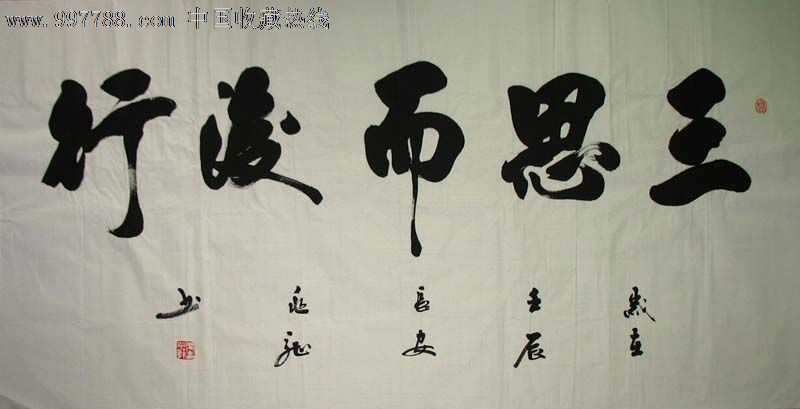 www.997788.com 中国收藏热线
三思而後行
歲在
壬辰
長安
兆龍
书